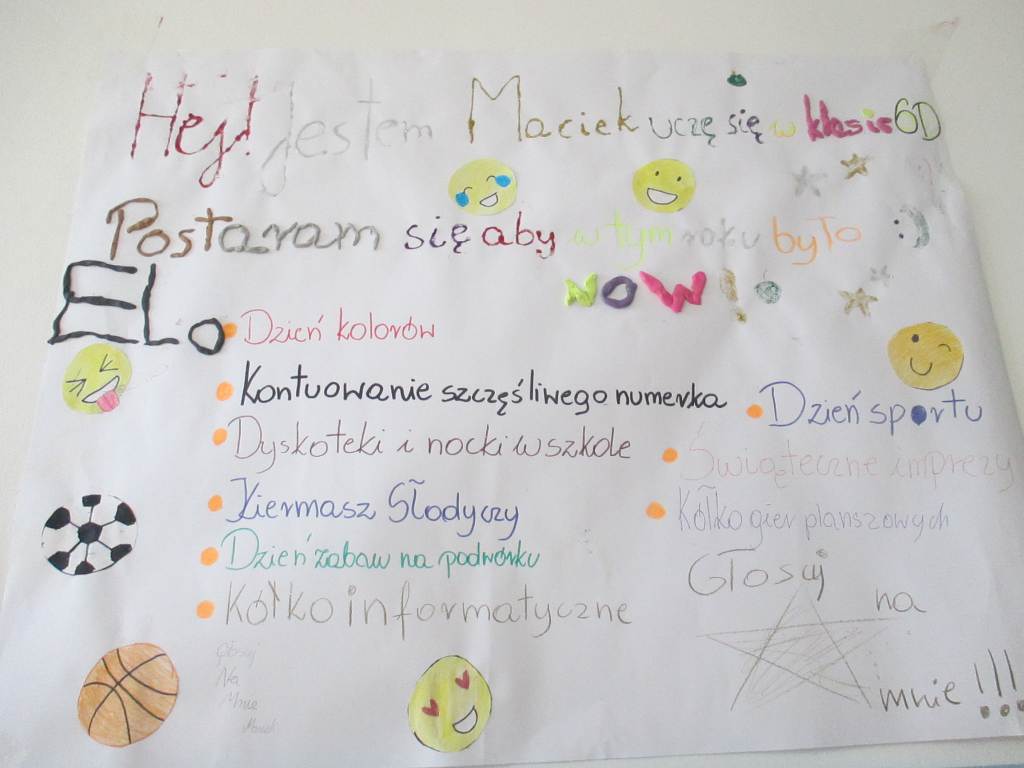 Hej! Jestem Maciek uczę się w klasie 6D
Postaram się aby w tym roku było :)
NOW!
EL.
• Dzień kolorów
• Kontuowanie szczęśliwego numerka
• Dzień sportu
• Dyskoteki i nocki w szkole
• Świąteczne imprezy
• Kiermasz Słodyczy
• Kółko gier planszowych
• Dzień zabaw na podwórku
• Kółko informatyczne
Głosuj
na
mnie!!!
Głosuj
Na
Mnie